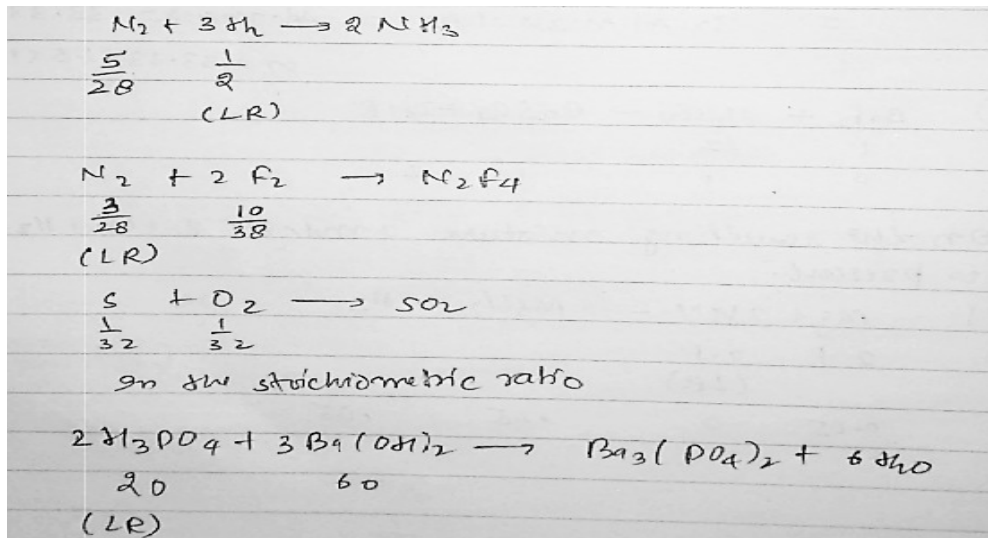 N2 + 3 H2 → 2 NH3
5/28 1/2
(LR)
N2 + 2 F2 → N2F4
3/28 10/38
(LR)
S + O2 → SO2
1/32 1/32
In the stoichiometric ratio
2 H3PO4 + 3 Ba(OH)2 → Ba3(PO4)2 + 6 H2O
20 60
(LR)